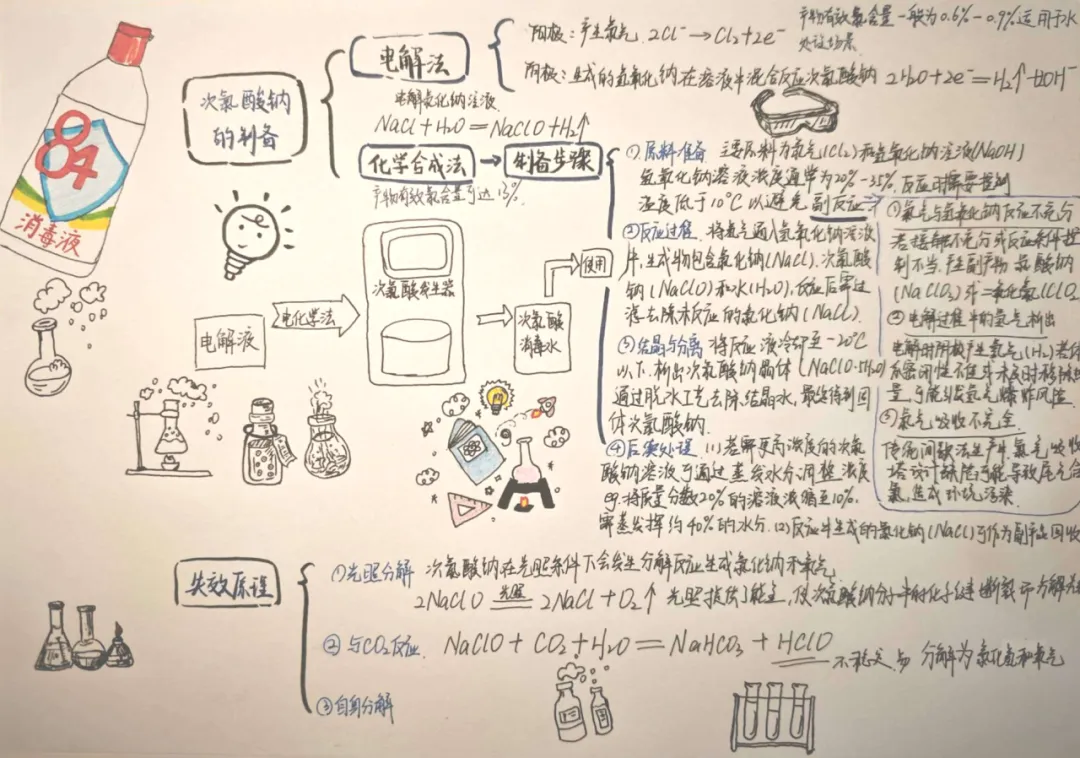 84
消毒液
次氯酸钠
的制备
电解法
电解氯化钠溶液
NaCl+H2O=NaClO+H2↑
阳极：产生氯气 2Cl⁻→Cl2+2e⁻
产物有效氯含量一般为0.6%-0.9%适用于水
处理场景
阴极：生成的氢氧化钠在溶液中混合反应次氯酸钠 2H2O+2e⁻=H2↑+2OH⁻
化学合成法
制备步骤
产物有效氯含量可达13%
①原料准备 主要原料为氯气(Cl2)和氢氧化钠溶液(NaOH)
氢氧化钠溶液浓度通常为20%-35%.反应时需要控制
温度低于10℃以避免副反应
②反应过程 将氯气通入氢氧化钠溶液
中,生成物包含氯化钠(NaCl).次氯酸
钠(NaClO)和水(H2O),反应后需过
滤去除未反应的氯化钠(NaCl).
③结晶与分离 将反应液冷却至-20℃
以下.析出次氯酸钠晶体
通过脱水工艺去除结晶水,最终得到固
体次氯酸钠.
④后续处理 (1)若需更高浓度的次氯
酸钠溶液可通过蒸发水分调整浓度
eg.将质量分数20%的溶液浓缩至10%,
需蒸发挥约40%的水分.(2)反应中生成的氯化钠(NaCl)可作为副产品回收
①氯气与氢氧化钠反应不充分
若接触不充分或反应条件控
制不当.产生副产物 氯酸钠
(NaClO3)或二氧化氯(ClO2
②电解过程中的氢气析出
电解时阴极产生氢气(H2)若
密闭性不佳或未及时移除
量,可能引发氢气爆炸风险
③氯气吸收不完全
传统间歇法生产中氯气吸收
塔设计缺陷可能导致尾气含
氯,造成环境污染
电解液
电化学法
次氯酸发生器
次氯酸
消毒水
使用
失效原理
①光照分解 次氯酸钠在光照条件下会发生分解反应生成氯化钠和氧气
2NaClO 光照 2NaCl+O2↑ 光照提供了能量,使次氯酸钠分子中的化学键断裂即分解为
②与CO2反应 NaClO+CO2+H2O=NaHCO3+HClO
不稳定易分解为氯化氢和氧气
③自身分解